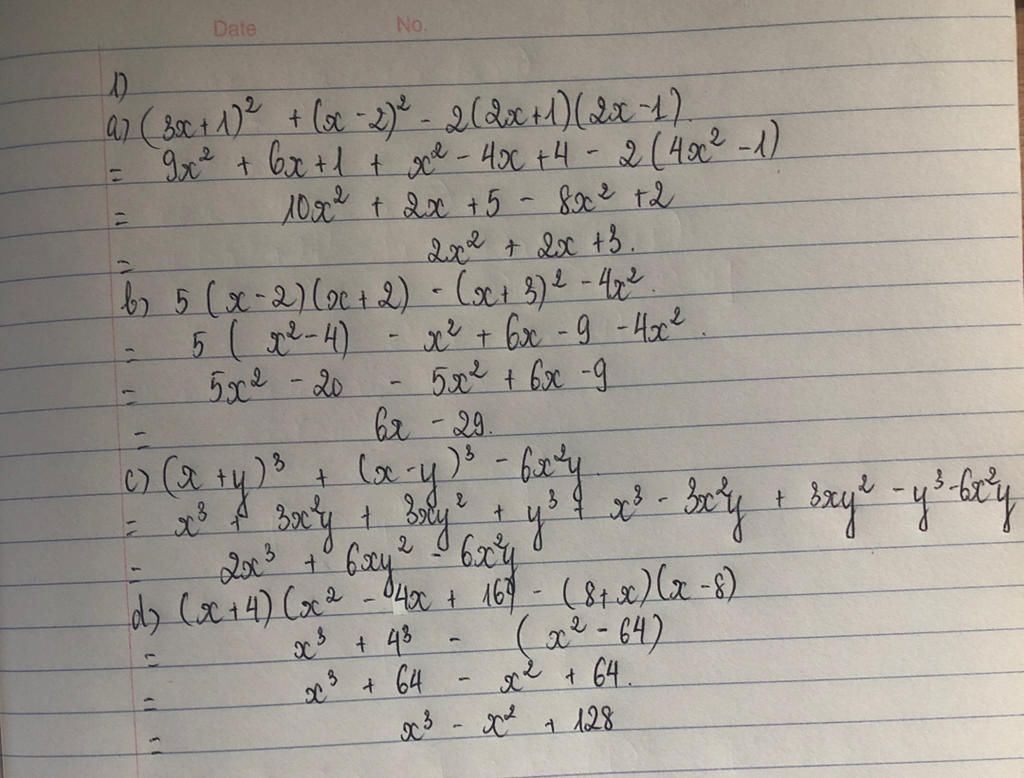 Date No.
1)
a) (3x+1)² + (x-2)² - 2(2x+1)(2x-1).
= 9x² + 6x+1 + x² - 4x+4 - 2(4x² -1)
= 10x² + 2x +5 - 8x² +2
= 2x² + 2x +3.
b) 5 (x-2)(x+2) - (x+3)² - 4x².
= 5 ( x²-4) - x² + 6x - 9 - 4x².
= 5x² - 20 - 5x² + 6x -9
= 6x - 29.
c) (x+y)³ + (x-y)³ - 6x²y.
= x³ + 3x²y + 3xy² + y³ + x³ - 3x²y + 3xy² - y³-6x²y
= 2x³ + 6xy² - 6x²y
d) (x+4)(x² - 4x + 16) - (8+x)(x-8)
= x³ + 4³ - (x² - 64)
= x³ + 64 - x² + 64.
= x³ - x² + 128